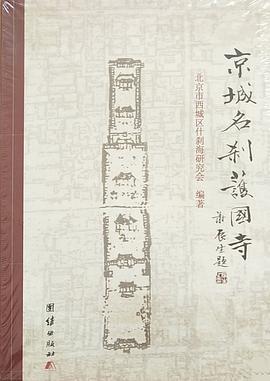 京城名刹護國寺
謝辰生題
北京市西城区什刹海研究会 编著
团结出版社